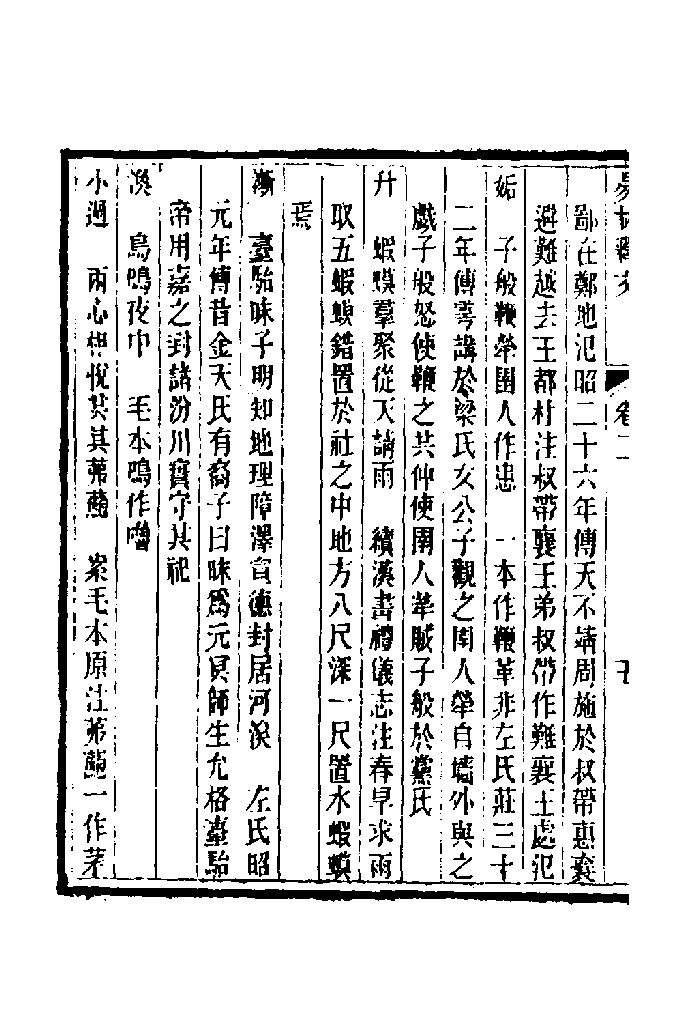 易林釋文 卷二
鄙在鄭地氾昭二十六年傳天不靖周施於叔帶惠襄
避難越去王都村注叔帶襄王弟叔帶作難襄王處氾
姤　子般鞭犖圉人作忠　一本作鞭革非左氏莊三十
二年傳雩講於梁氏女公子觀之圉人犖自墻外與之
戲子般怒使鞭之共仲使圉人犖賊子般於黨氏
升　蝦蟆羣聚從天請雨　續漢書禮儀志注春旱求雨
取五蝦蟆錯置於社之中地方八尺深一尺置水蝦蟆
焉
漸　臺駘昧子明知地理障澤宣德封居河涘　左氏昭
元年傳昔金天氏有裔子曰昧爲元冥師生允格臺駘
帝用嘉之封諸汾川實守其祀
渙　鳥鳴夜中　毛本鳴作噆
小過　兩心相悅共其茅蘆　案毛本原注茅蘆一作茅